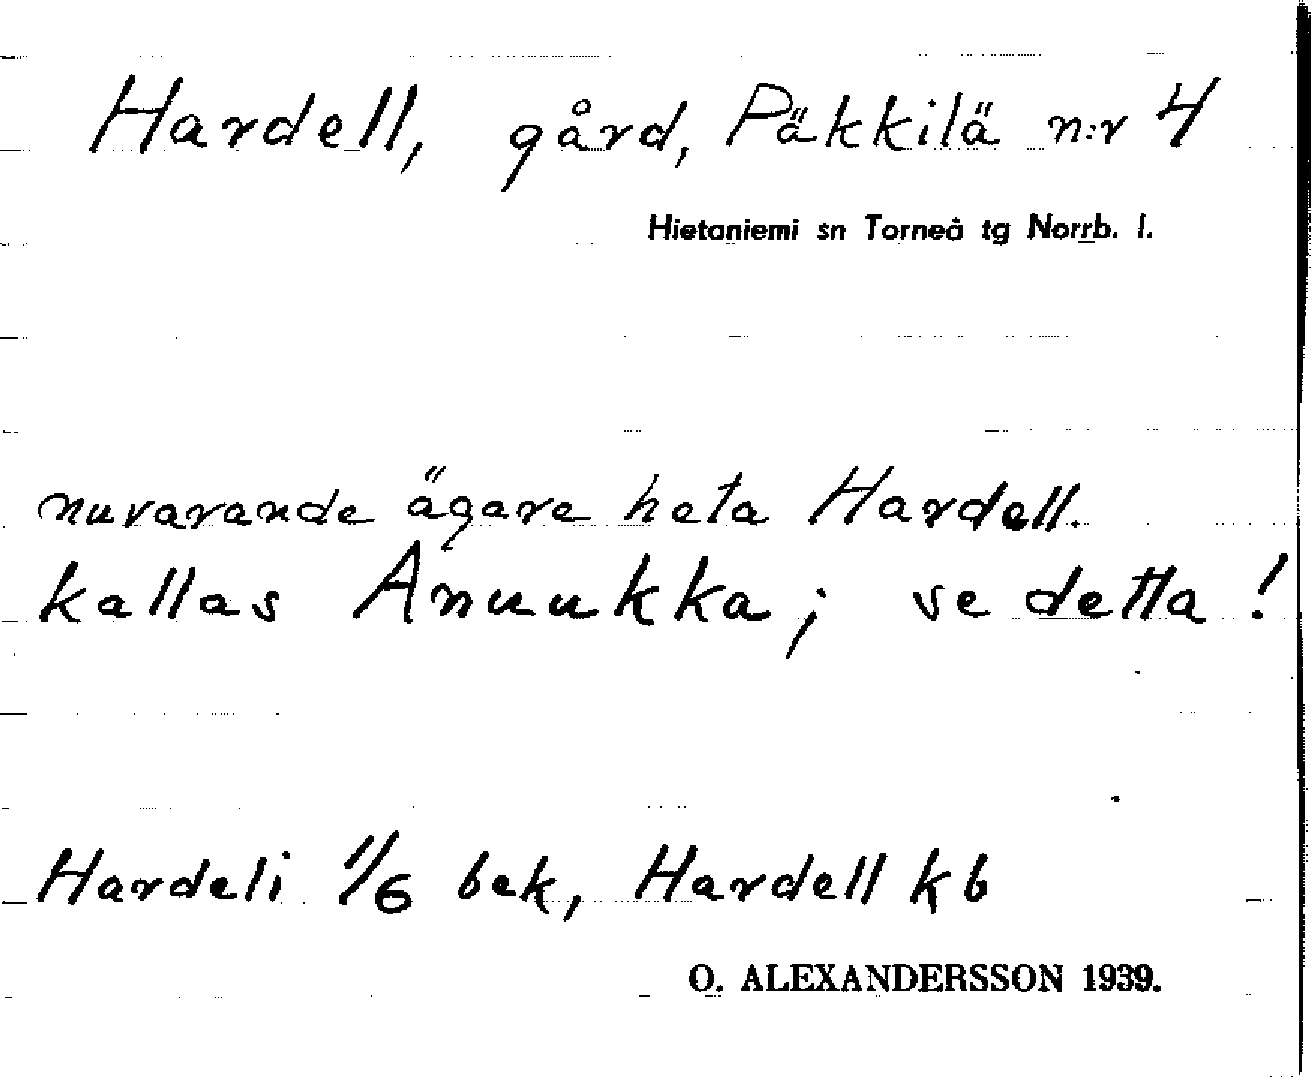 Hardell, gård, Päkkilä n:r 4
Hietaniemi sn Torneå tg Norrb. l.
nuvarande ägare heta Hardell.
kallas Anuukka; se detta!
Hardeli 1/6 bek, Hardell kb
O. ALEXANDERSSON 1939.